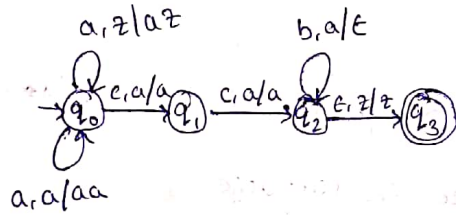 a, z/az
b, a/ε
q₀ c, a/a q₁ c, a/a q₂ ε, z/z q₃
a, a/aa